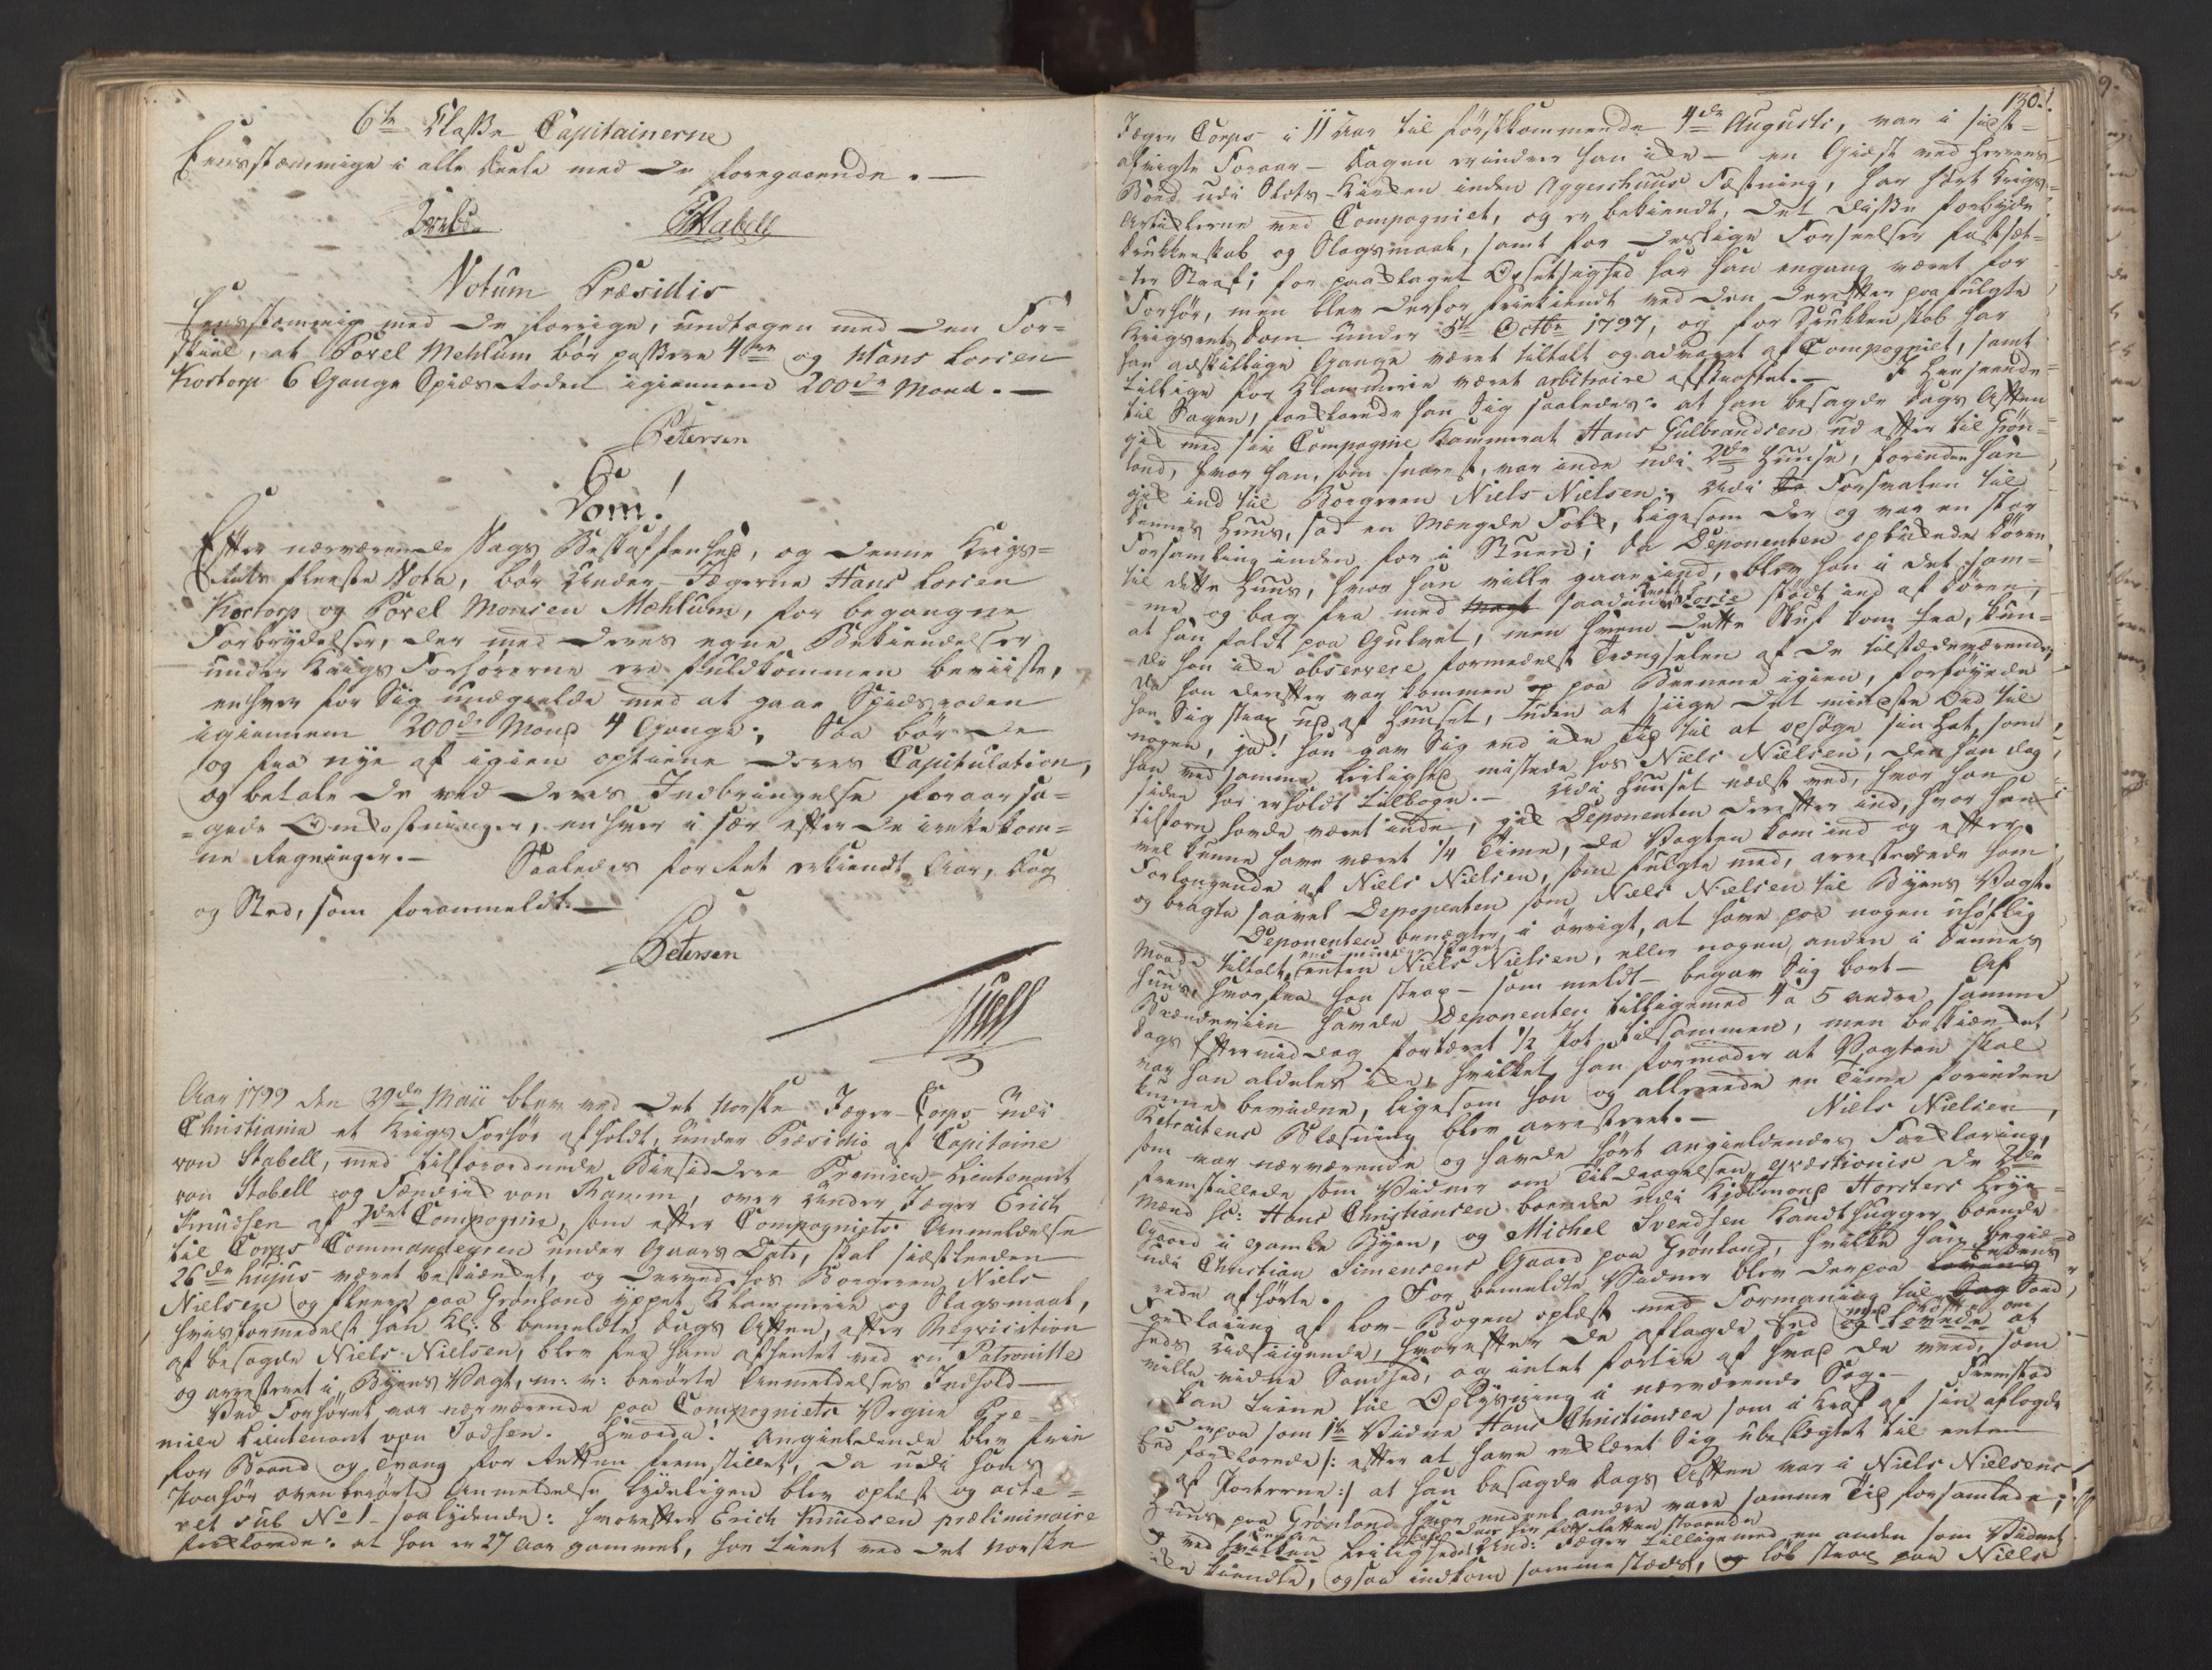 6te Classe Capitainerne
Eensstæmmige i alle Deele med de foregaaende. —
Stabell
Votum Præsidis
Eensstæmmig med de forrige, undtagen med den For=
skiel, at Povel Mehlum bör passere 4re og Hans Lorien
Kortorp 6 Gange Spidsroden igiennem 200de Mand. —
Petersen
Dom!
Efter nærværende Sags Beskaffenhed, og denne Krigs=
Rets fleeste Vota, bör Under-Jægerne Hans Lorien
Kortorp og Povel Monsen Mæhlum, for begangne
Forbrydelser, der med deres egne Bekiendelser
under Krigs Forhörerne ere fuldkommen beviiste,
enhver for Sig undgielde med at gaae Spidsroden
igiennem 200de Mand 4 Gange; Saa bör de
og fra nye af igien optiene deres Capitulation,
og betale de ved deres Indbringelse foraarsa=
=gede Omkostninger, enhver i sær efter de irettekom=
ne Regninger. — Saaledes for Ret erkiendt Aar, Dag
og Sted, som foranmeldt. —
Petersen
Aar 1799 den 29de Maii blev ved det norske Jæger-Corps udi
Christiania et Krigs Forhör afholdt, under Præsidio af Capitaine
von Stabell, med tilforordnede Biesiddere Premier-Lieutenant
von Stabell og Fændrik von Ramm, over Under Jæger Erich
Knudsen af 2det Compagnie, som efter Compagniets Anmeldelse
til Corps Commandeuren under Gaars Dato, skal sidstleeden
26de hujus været beskiænket, og derved hos Borgeren Niels
Nielsen og fleere paa Grönland yppet Klammerie og Slagsmaal,
hvisformedelst han Kl: 8 bemeldte Dags Aften, efter Reqvisition
af besagde Niels Nielsen, blev fra ham afhentet ved en Patrouille
og arresteret i Byens Vagt, m: v: berörte Anmeldelses Indhold —
Ved Forhöret var nærværende paa Compagniets Vegne Pre=
mier Lieutenant von Todsen. Hvorda! Angieldende blev frie
for Baand og Tvang for Retten fremstillet, da udi hans
Paahör ovenberörte Anmeldelse tydeligen blev oplæst og acte=
ret sub No 1 saalydende: hvorefter Erich Knudsen præliminaire
forklarede: at han er 27 Aar gammel, har tient ved det norske
130.
Jæger Corps i 11 Aar til förstkommende 4de Augusti, var i sidst=
afvigte Foraar — Dagen erindrer han ikke — en Giæst ved Herrens
Bord udi Slots-Kirken inden Aggershuus Fæstning, har hört Krigs=
Artiklerne ved Compagniet, og er bekiendt, det disse forbyde
Drukkenskab og Slagsmaal, samt for deslige Forseelser fastsæt=
=ter Straf; for paaklaget Opsetsighed har han engang været for
Forhör, men blev derfor friekiendt ved den derefter paafulgte
Krigsrets Dom under 5te Octbr 1797, og for Drukkenskab har
han adskillige Gange været tiltalt og advaret af Compagniet, samt
tillige for Klammerie været arbitraire afstraffet. — I Henseende
til Sagen, forklarede han Sig saaledes: at han besagde Dags Aften
gik med sin Compagnie Kammerat Hans Gulbrandsen ud efter til Grön=
land, hvor han, som snarest, var inde udi 2de Huuse, forinden han
gik ind til Borgeren Niels Nielsen; udi Forsvalen til
dennes Huus, sad en Mængde Folk, ligesom der og var en stor
Forsamling inden for i Stuen; da Deponenten oplukkede Dören
til dette Huus, hvor han ville gaae ind, blev han i det sam=
=me og bag fra med saadan Force stödt ind af Dören,
at han faldt paa Gulvet, men hvem dette Stuf kom fra, kun=
de han ikke observere formedelst Trængselen af de tilstædeværende;
da han derefter var kommen paa Beenene igien, forföyede
han Sig strax ud af Huuset, uden at siige det mindste Ord til
nogen, ja! han gav Sig end ikke Tiid til at opsöge sin Hat, som
han ved samme Leilighed mistede hos Niels Nielsen, den han dog
siden har erholdt tilbage. — Udi Huuset næst ved, hvor han
tilforn havde været inde, gik Deponenten derefter ind, hvor han
vel kunne have været 1/4 Time, da Vagten kom ind og efter
Forlangende af Niels Nielsen, som fulgte med, arresterede ham
og bragte saavel Deponenten som Niels Nielsen til Byens Vagt.
Deponenten benægter, i övrigt, at have paa nogen uhöflig
Maade tiltalt, end mindre slaget enten Niels Nielsen, eller nogen anden i dennes
Huus, hvorfra han strax — som meldt — begav Sig bort — Af
Brændeviin havde Deponenten tilligemed 4 a 5 andre samme
Dags Eftermiddag fortæret 1/2 Pot tilsammen, men beskiænket
var han aldeles ikke, hvilket han formoder at Vagten skal
kunne bevidne, ligesom han og allereede en Time forinden
Retraitens Blæsning blev arresteret. — Niels Nielsen,
som var nærværende og havde hört Angieldendes Forklaring,
fremstillede som Vidner om Tildragelsen qvæstionis de 2de
Mænd sc: Hans Christiansen boende udi Kiöbmand Horsters Leye=
Gaard i gamle Byen, og Michel Svendsen Kandthugger, boende
udi Christian Simensens Gaard paa Grönland, hvilke han begiæ=
rede afhörte. For bemeldte Vidner blev derpaa Eedens
Forklaring af Lov-Bogen oplæst med Formaning til Sand=
heds Udsiigende, hvorefter de aflagde Eed med Löfte om at
ville vidne Sandhed, og intet fortie af hvad de veed, som
kan tiene til Oplysning i nærværende Sag. — Fremstod
derpaa som 1te Vidne Hans Christiansen som i Kraft af sin aflagde
Eed forklarede /: efter at have erklæret Sig ubeslægtet til enten
af Parterne :/ at han besagde Dags Aften var i Niels Nielsens
Huus paa Grönland hvor endeel andre vare samme Tiid forsamlede;
ved hvilken Leilighed Und: Jæger tilligemed en anden som Vidnet
ikke kiendte, ogsaa indkom sammestæds, löb strax paa Niels